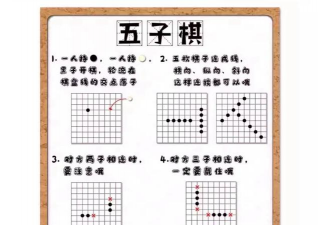 五子棋
1.一人持●,一人持○,
黑子开棋,轮流在
棋盘线的交点落子
2.五枚棋子连成线,
横向、纵向、斜向
这样连续都可以哦
3.对方两子相连时,
要注意哦
4.对方三子相连时,
一定要堵住哦